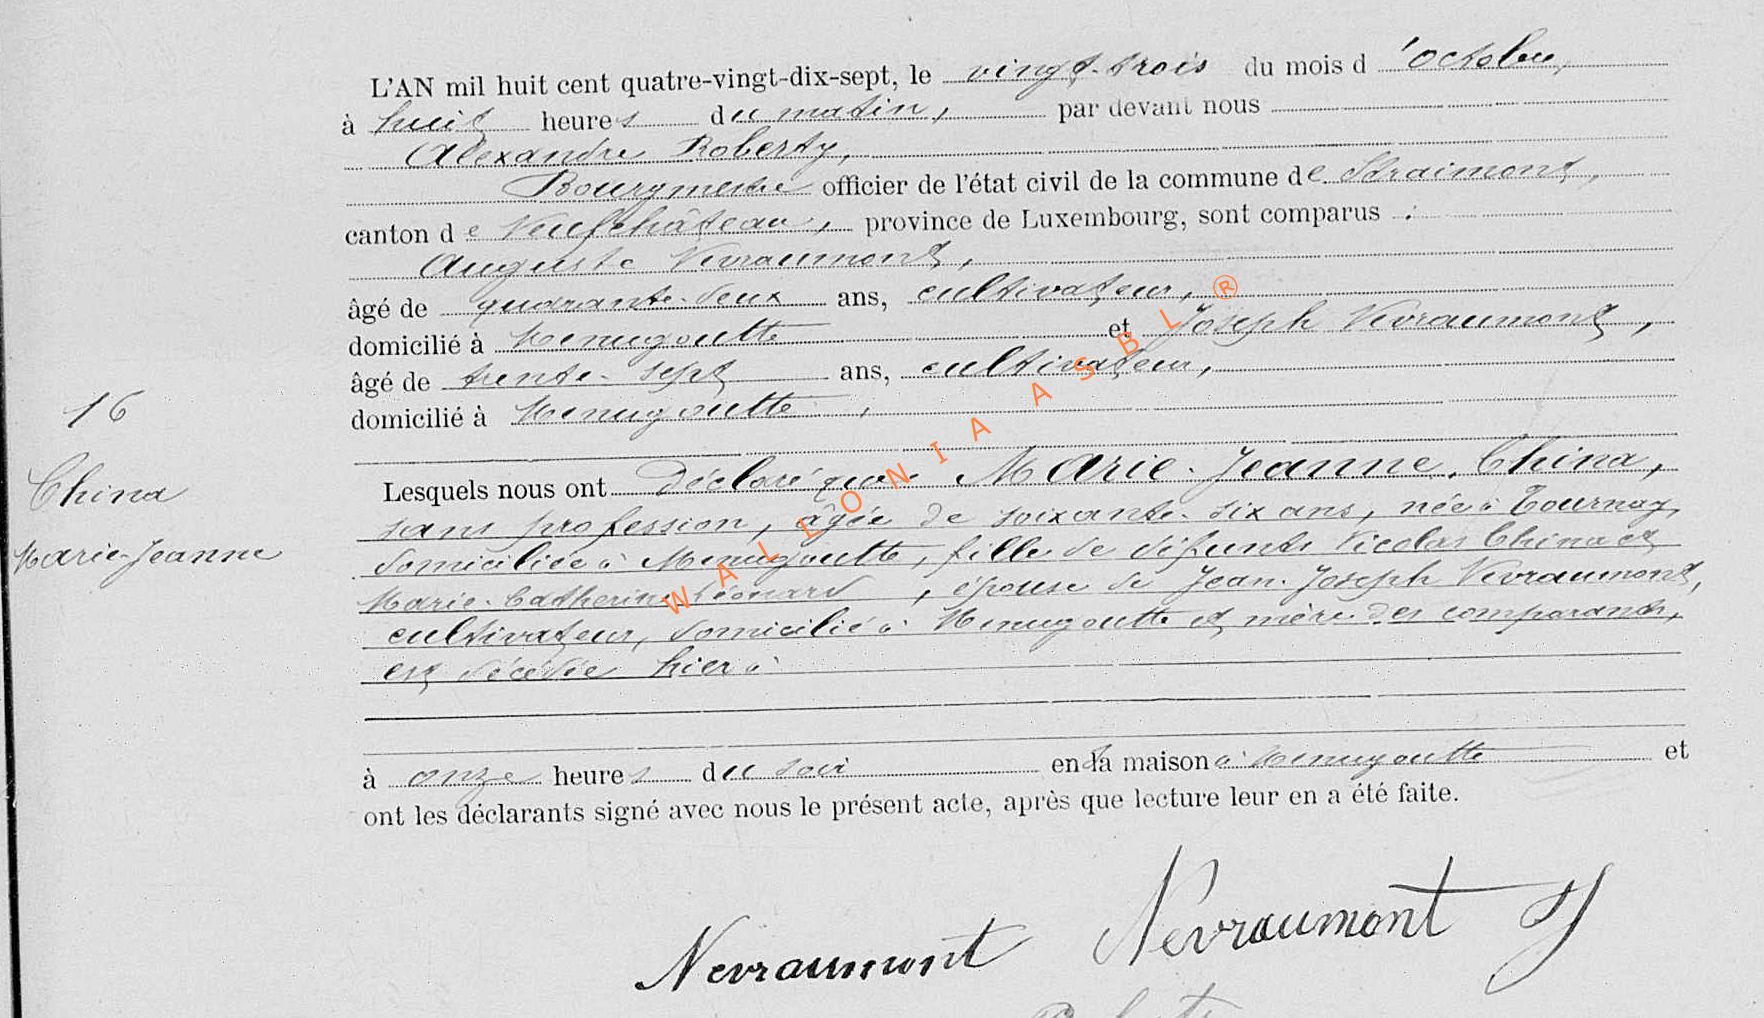 L'AN mil huit cent quatre-vingt-dix-sept, le vingt-trois du mois d'octobre,
à huit heures du matin, par devant nous
Alexandre Roberty,
Bourgmestre officier de l'état civil de la commune de Straimont,
canton de Neufchâteau, province de Luxembourg, sont comparus :
Auguste Nevraumont,
âgé de quarante-deux ans, cultivateur,
domicilié à Menugoutte et Joseph Nevraumont,
âgé de trente-sept ans, cultivateur,
domicilié à Menugoutte,
16
China
Marie-Jeanne
Lesquels nous ont déclaré que Marie-Jeanne China,
sans profession, âgée de soixante-six ans, née à Tournay,
domiciliée à Menugoutte, fille de défunts Nicolas China et
Marie-Catherine Léonard, épouse de Jean-Joseph Nevraumont,
cultivateur, domicilié à Menugoutte et mère des comparants,
est décédée hier à
à onze heures du soir en sa maison à Menugoutte et
ont les déclarants signé avec nous le présent acte, après que lecture leur en a été faite.
Nevraumont Nevraumont J
WALLONIA ASBL ®